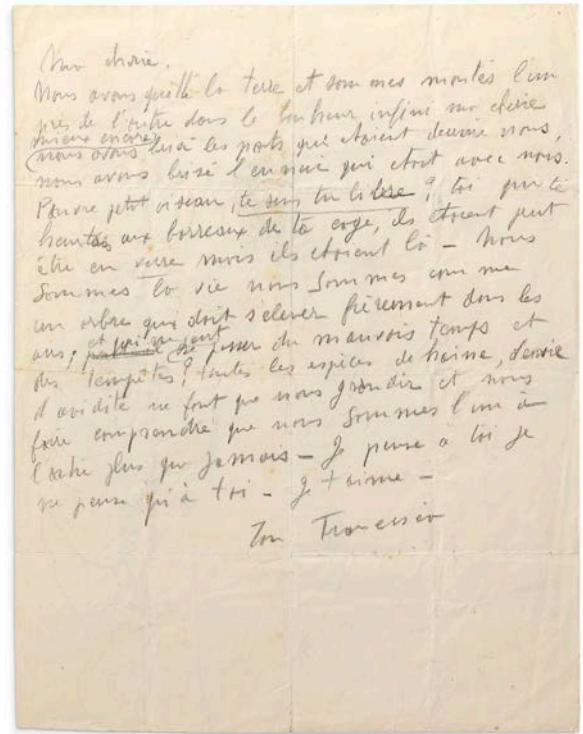 Ma chérie.
Nous avons quitté la terre et sommes montés l'un
près de l'autre dans le bonheur infini ma chérie
mieux encore
nous avons brisé les ponts qui étaient derrière nous,
nous avons brisé l'ennemi qui était avec nous.
Pauvre petit oiseau, te sens tu libre ? toi qui te
heurtais aux barreaux de ta cage, ils étaient peut
être en verre mais ils étaient là - Nous
sommes la vie nous sommes comme
un arbre qui doit s'élever fièrement dans les
airs, et qui ne peut se passer du mauvais temps et
des tempêtes, toutes les espèces de haine, d'envie
d'avidité ne font que nous grandir et nous
faire comprendre que nous sommes l'un à
l'autre plus que jamais - Je pense à toi je
ne pense qu'à toi - Je t'aime -
Ton